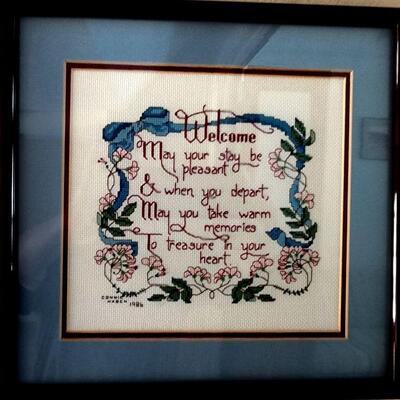 Welcome
May your stay be
pleasant
& when you depart,
May you take warm
memories
To treasure in your
heart.
CONNIE
1986